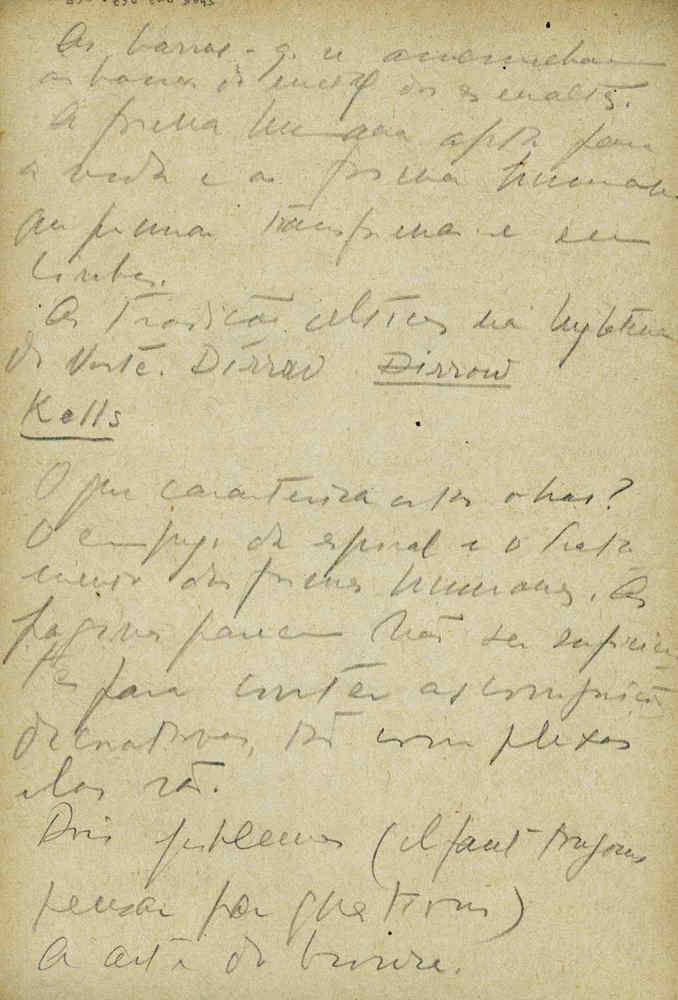 As barras - q. se assemelham
as barras de
A forma humana apta para
a vida e a forma humana
que se transforma em
linhas.
As tradições célticas na Inglaterra
do Norte. Dirrow Dirrow
Kells
O que caracteriza estas obras?
O emprego da espiral e o trata
mento das formas humanas. As
paginas parecem não ser suficien
tes para conter as composições
decorativas, tão complexas
elas são.
Dois problemas (il faut toujours
penser par questions)
A arte do bronze.